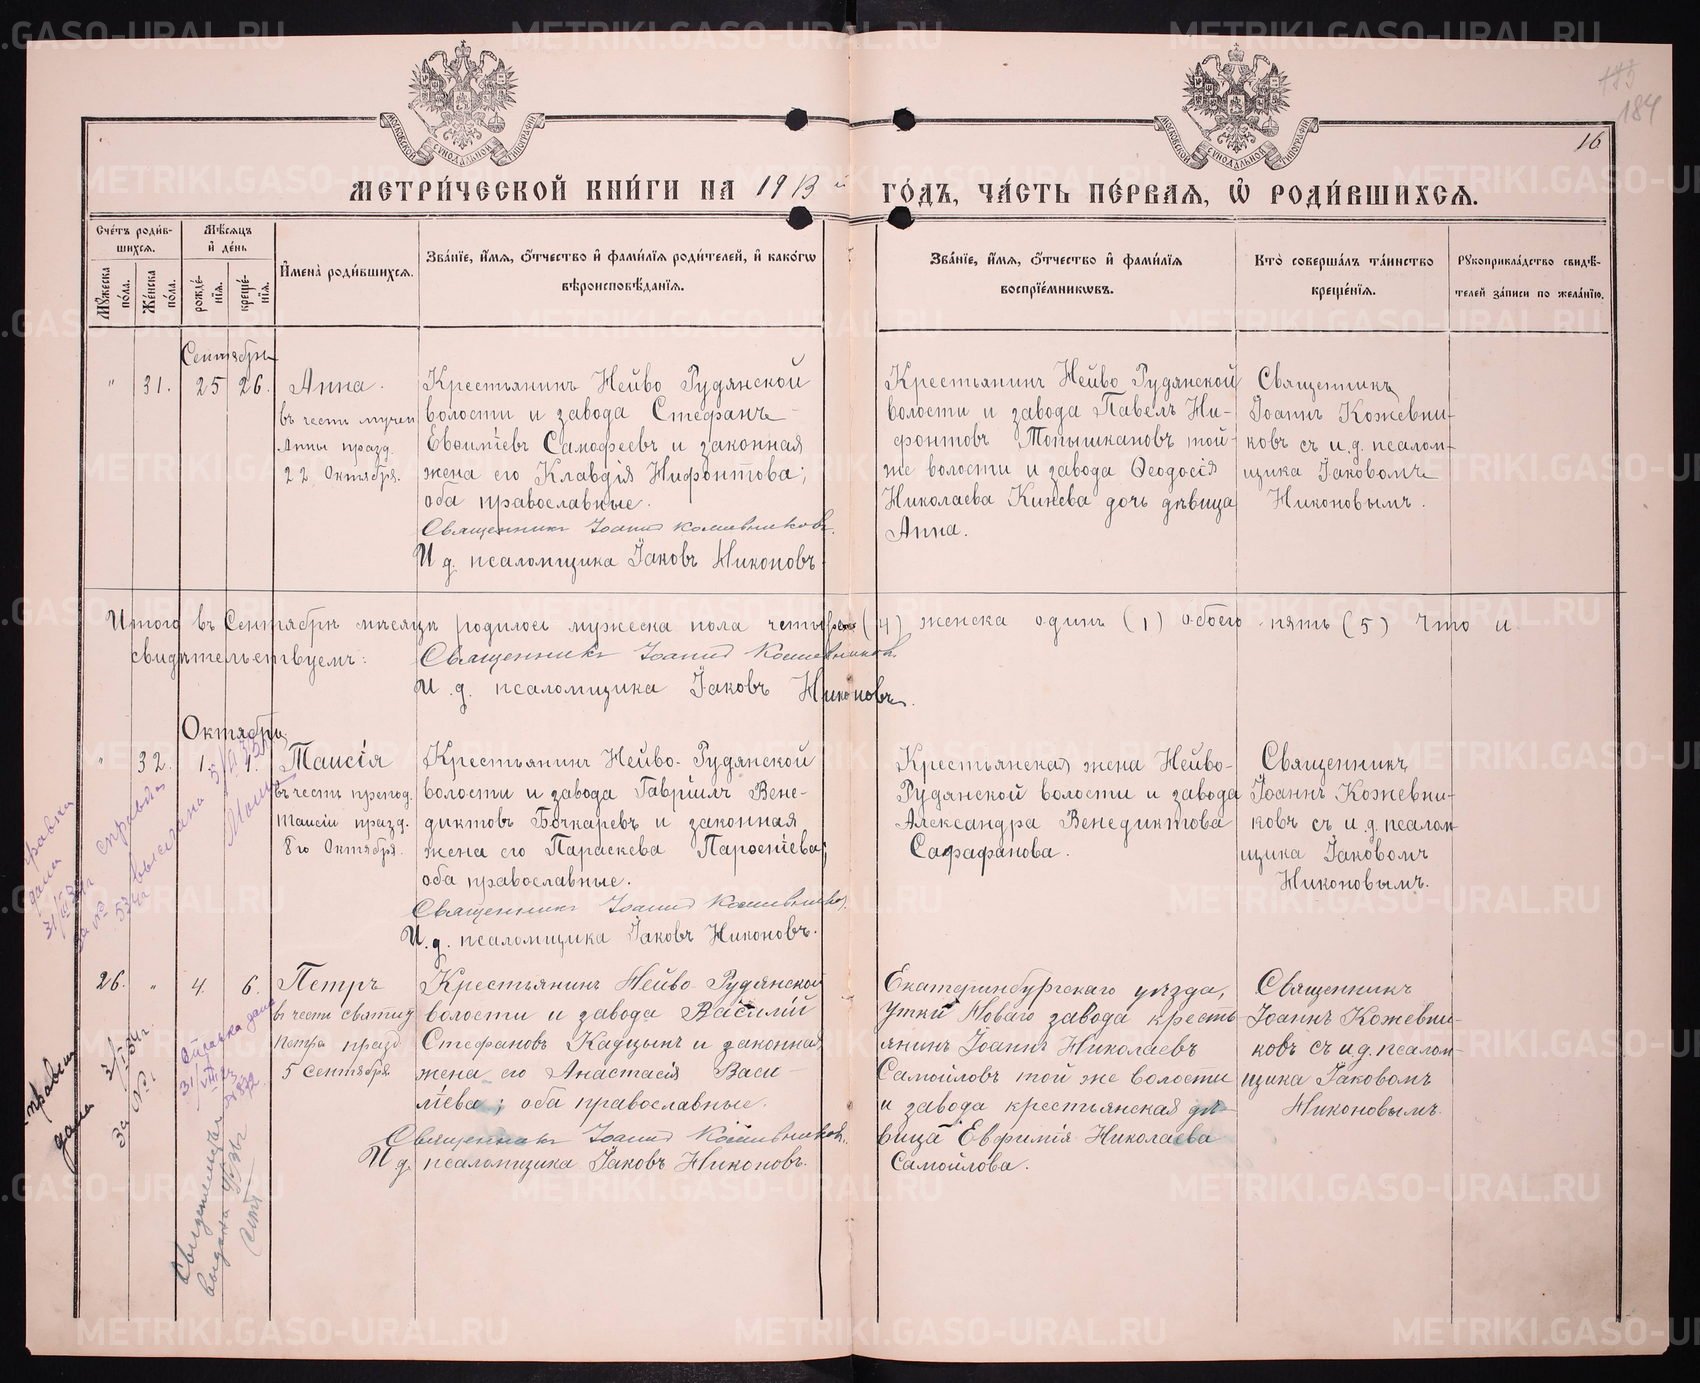 МЕТРИ́ЧЕСКОЙ КНИ́ГИ НА 1913 й ГО́ДЪ, ЧА́СТЬ ПЕ́РВАЯ, Ѽ РОДИ́ВШИХСЯ.
183
184
16
МОСКОВСКОЙ СѴНОДАЛЬНОЙ ТИПОГРАФІИ
МОСКОВСКОЙ СѴНОДАЛЬНОЙ ТИПОГРАФІИ
Сче́тъ роди́в-
шихся.
Мꙋ́жеска по́ла.
Же́нска по́ла.
Мѣ́сяцъ
и҆ де́нь
рожде́-
нїя.
креще́-
нїя.
И҆мена̀ роди́вшихся.
Зва́нїе, и҆́мя, ѻ҆́тчество и҆ фами́лїя роди́телей, и҆ како́гѡ
вѣроисповѣ́данїя.
Зва́нїе, и҆́мя, ѻ҆́тчество и҆ фами́лїя
воспрїе́мникѡвъ.
Кто̀ соверша́лъ та́инство
креще́нїя.
Рꙋкоприкла́дство свидѣ́-
телей за́писи по жела́нїю.
Сентябрь
" 31. 25 26.
Анна.
въ честь мучен
Анны празд.
22 Октября.
Крестьянинъ Нейво Рудянской
волости и завода Стефанъ
Евѳиміевъ Самофеевъ и законная
жена его Клавдія Нифонтова;
оба православные.
Священникъ Іоаннъ Кожевниковъ.
И д. псаломщика Іаковъ Никоновъ.
Крестьянинъ Нейво Рудянской
волости и завода Павелъ Ни-
фонтовъ Топышкановъ той-
же волости и завода Ѳеодосія
Николаева Кинева дочь дѣвица
Анна.
Священникъ
Іоаннъ Кожевни-
ковъ съ и.д. псалом-
щика Іаковомъ
Никоновымъ.
Итого въ Сентябрѣ мѣсяцѣ родилось мужеска пола четыре (4) женска одинъ (1) обоего пять (5) Что и
свидѣтельствуемъ:
Священникъ Іоаннъ Кожевниковъ.
И.д. псаломщика Іаковъ Никоновъ.
Октябрь
" 32. 1. 1.
Таисія
въ честь препод.
Таисіи празд.
8го Октября.
Крестьянинъ Нейво-Рудянской
волости и завода Гавріилъ Вене-
диктовъ Бочкаревъ и законная
жена его Параскева Парѳеніева;
оба православные.
Священникъ Іоаннъ Кожевниковъ.
И.д. псаломщика Іаковъ Никоновъ.
Крестьянская жена Нейво-
Рудянской волости и завода
Александра Венедиктова
Сарафанова.
Священникъ
Іоаннъ Кожевни-
ковъ съ и.д. псалом-
щика Іаковомъ
Никоновымъ.
26. " 4. 6.
Петръ
въ честь святит
Петра празд
5 Сентября
Крестьянинъ Нейво Рудянской
волости и завода Василій
Стефановъ Кадцынъ и законная
жена его Анастасія Васи-
ліева; оба православные.
Священникъ Іоаннъ Кожевниковъ.
И д. псаломщика Іаковъ Никоновъ.
Екатеринбургскаго уѣзда,
Утки Новаго завода кресть-
янинъ Іоаннъ Николаевъ
Самойловъ той же волости
и завода крестьянская дѣ-
вица Евфимія Николаева
Самойлова.
Священникъ
Іоаннъ Кожевни-
ковъ съ и.д. псалом-
щика Іаковомъ
Никоновымъ.
справка
выслана
дана
справка дана
Свидетельство
выдано
METRIKI.GASO-URAL.RU